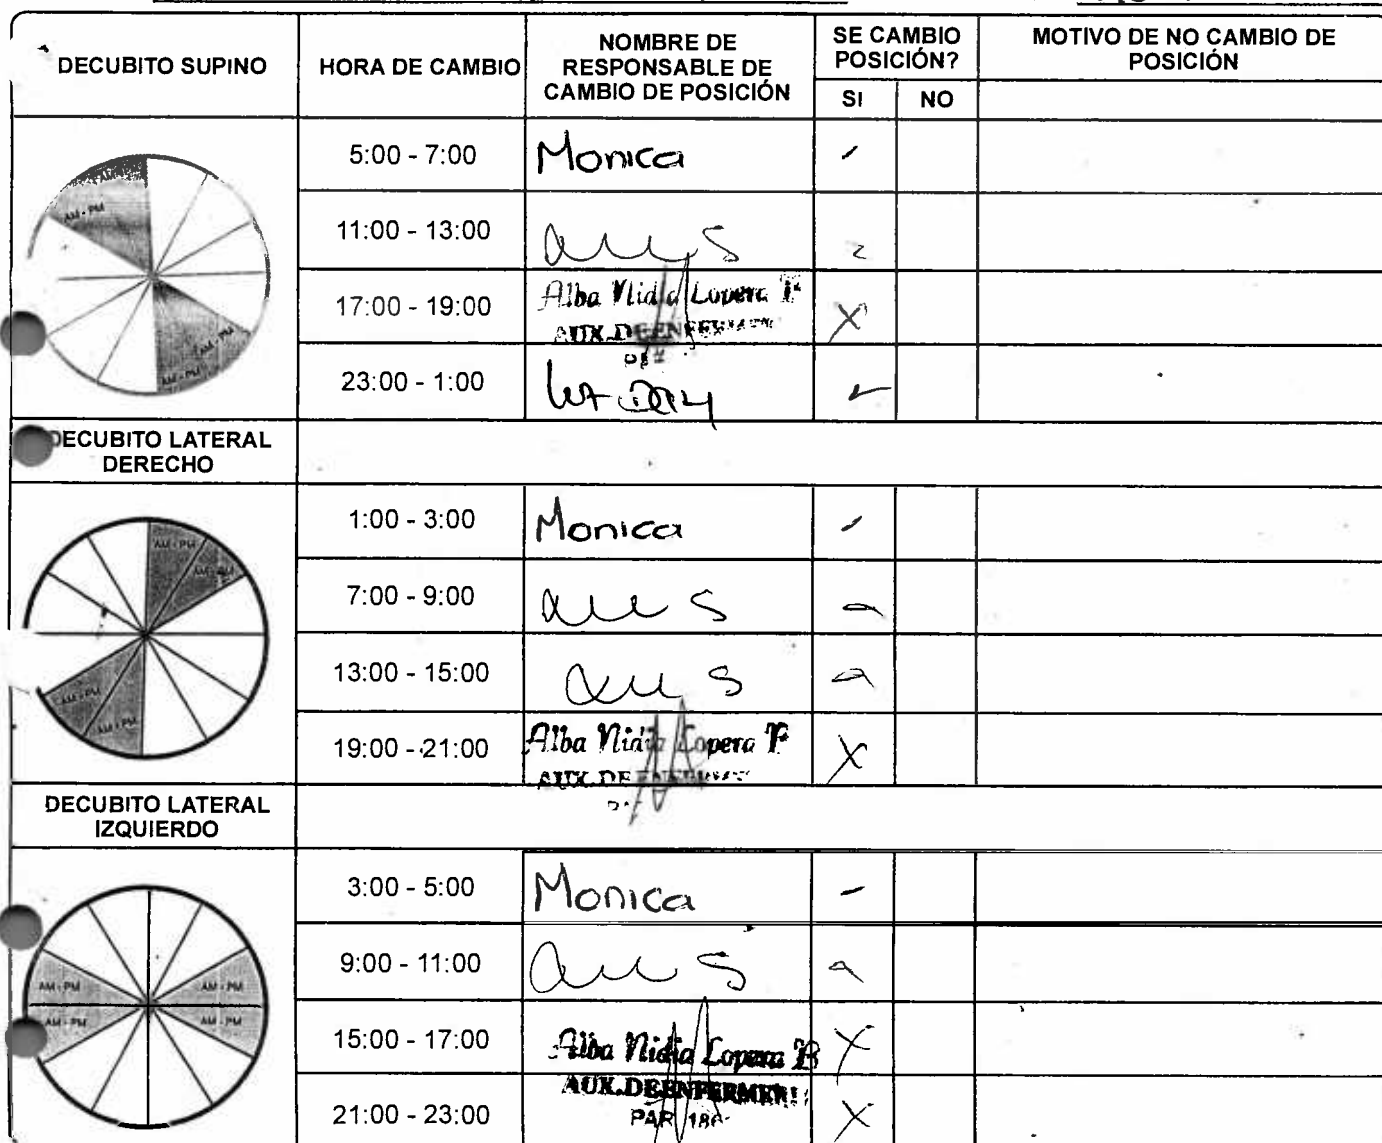 DECUBITO SUPINO
HORA DE CAMBIO
NOMBRE DE
RESPONSABLE DE
CAMBIO DE POSICIÓN
SE CAMBIO
POSICIÓN?
SI
NO
MOTIVO DE NO CAMBIO DE
POSICIÓN
AM - PM
AM - PM
AM - PM
5:00 - 7:00 Monica
11:00 - 13:00
17:00 - 19:00 Alba Nidia Lopera
AUX.DE
X
23:00 - 1:00
DECUBITO LATERAL
DERECHO
AM - PM
AM - PM
AM - PM
AM - PM
1:00 - 3:00 Monica
7:00 - 9:00
13:00 - 15:00
19:00 - 21:00 Alba Nidia Lopera
AUX.DE
X
DECUBITO LATERAL
IZQUIERDO
AM - PM
AM - PM
AM - PM
AM - PM
3:00 - 5:00 Monica
9:00 - 11:00
15:00 - 17:00 Alba Nidia Lopera X
AUX.DE ENFERMERI
PAR
21:00 - 23:00 X